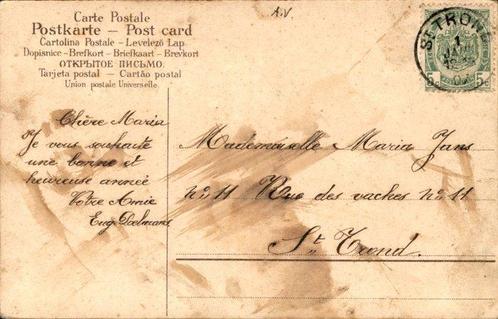 A.V.
Carte Postale
Postkarte — Post card
Cartolina Postale - Levelező Lap
Dopisnice - Brefkort - Briefkaart - Brevkort
ОТКРЫТОЕ ПИСЬМО.
Tarjeta postal — Cartão postal
Union postale Universelle.
ST TROND
1
5c 5c
Chère Maria
Je vous souhaite
une bonne et
heureuse année
Votre Amie
Eug. Doelmans
Mademoiselle Maria Jans
No 11 Rue des vaches No 11
St Trond.